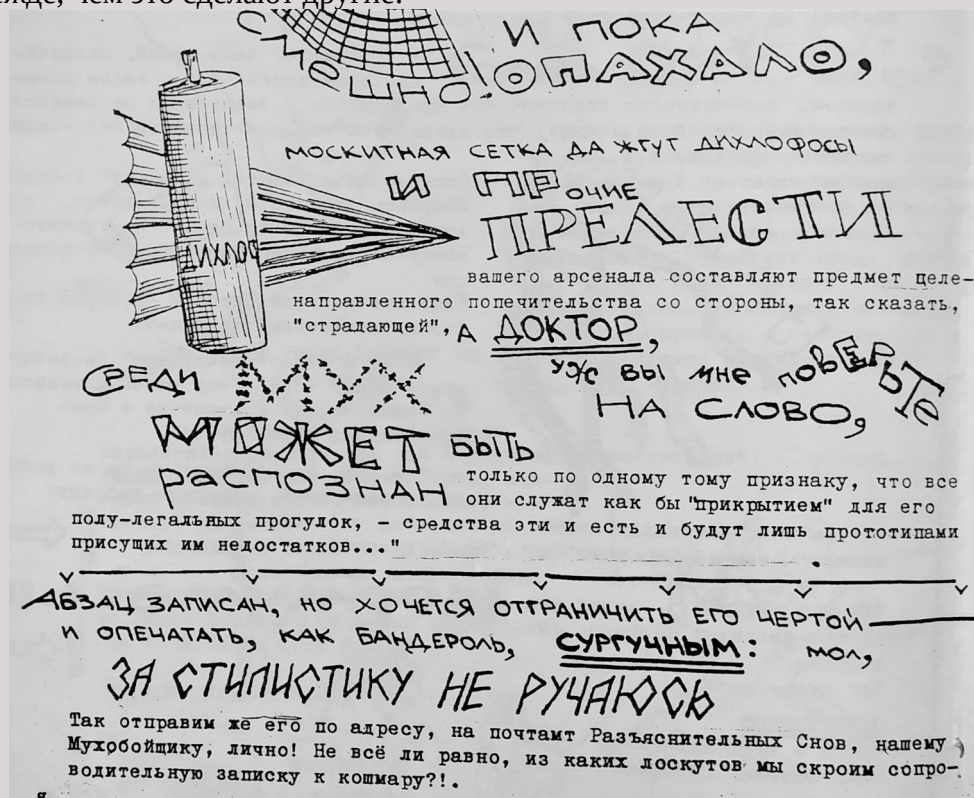 жде, чем это сделают другие.
СМЕ
ШНО!
И ПОКА
ОПАХАЛО,
МОСКИТНАЯ СЕТКА ДА ЖГУТ ДИХЛОФОСЫ
И ПРОЧИЕ
ПРЕЛЕСТИ
ДИХЛОФ
вашего арсенала составляют предмет целе-
направленного попечительства со стороны, так сказать,
"страдающей", А ДОКТОР,
СРЕДИ
НИХ
УЖ ВЫ МНЕ ПОВЕРЬТЕ
НА СЛОВО,
МОЖЕТ БЫТЬ
РАСПОЗНАН
только по одному тому признаку, что все
они служат как бы "прикрытием" для его
полу-легальных прогулок, – средства эти и есть и будут лишь прототипами
присущих им недостатков..."
АБЗАЦ ЗАПИСАН, НО ХОЧЕТСЯ ОТГРАНИЧИТЬ ЕГО ЧЕРТОЙ
И ОПЕЧАТАТЬ, КАК БАНДЕРОЛЬ, СУРГУЧНЫМ: МОЛ,
ЗА СТИЛИСТИКУ НЕ РУЧАЮСЬ
Так отправим же его по адресу, на почтамт Разъяснительных Снов, нашему
Мухобойщику, лично! Не всё ли равно, из каких лоскутов мы скроим сопро-
водительную записку к кошмару?!.